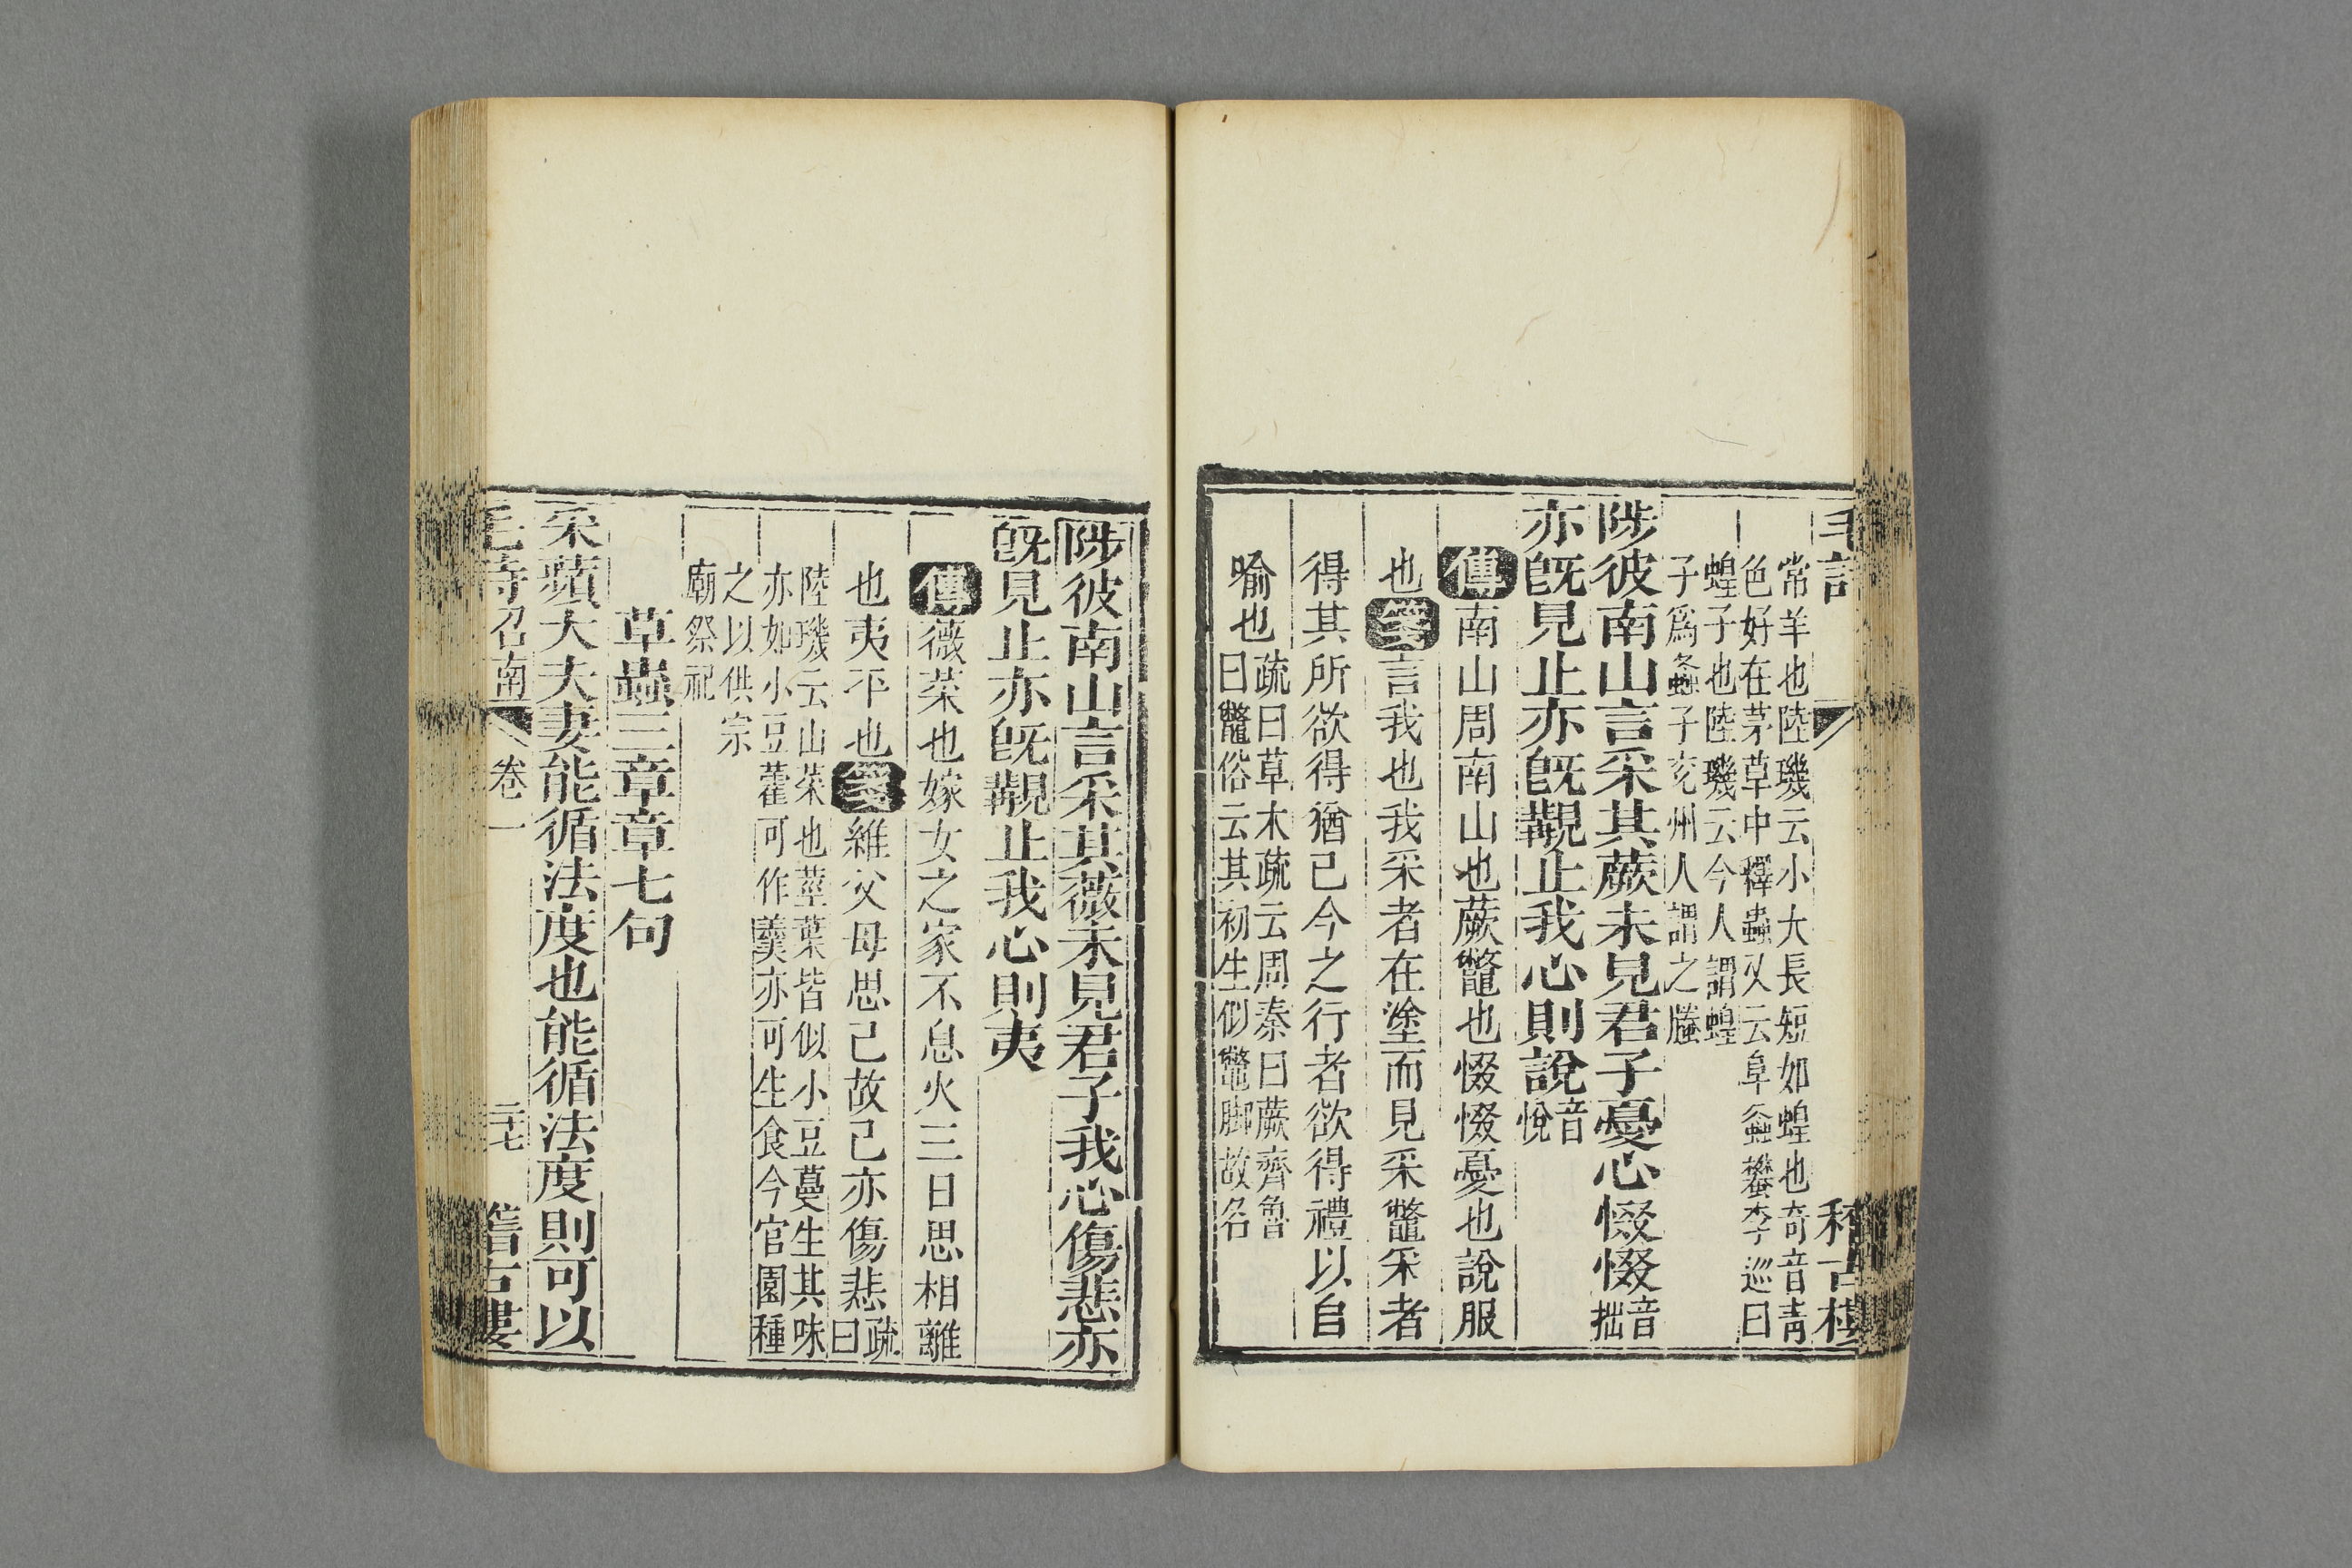 毛詩 稽古樓
常羊也陸璣云小大長短如蝗也奇音青
色好在茅草中釋蟲又云阜螽蠜李巡曰
蝗子也陸璣云今人謂蝗
子為螽子兗州人謂之螣
陟彼南山言采其蕨未見君子憂心惙惙音拙
亦旣見止亦旣覯止我心則說音悅
傳南山周南山也蕨鼈也惙惙憂也說服
也箋言我也我采者在塗而見采鼈采者
得其所欲得猶已今之行者欲得禮以自
喻也疏曰草木疏云周秦曰蕨齊魯
曰鼈俗云其初生似鼈脚故名
陟彼南山言采其薇未見君子我心傷悲亦
旣見止亦旣覯止我心則夷
傳薇菜也嫁女之家不息火三日思相離
也夷平也箋維父母思己故己亦傷悲疏曰
陸璣云山菜也莖葉皆似小豆蔓生其味
亦如小豆藿可作羹亦可生食今官園種
之以供宗
廟祭祀
草蟲三章章七句
采蘋大夫妻能循法度也能循法度則可以
毛詩召南 卷一 二七 稽古樓